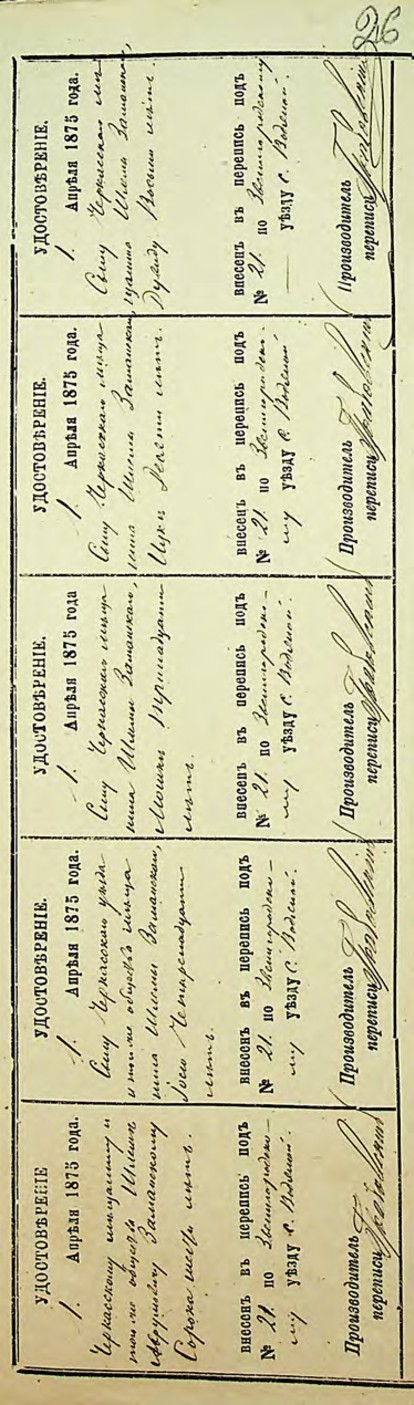 26
УДОСТОВѢРЕНІЕ
1. Апрѣля 1875 года.
Черкасскому мѣщанину и
того же общества Шлемѣ
Заманскому
Сорока шесть лѣтъ.
внесенъ въ перепись подъ
№ 21. по Звенигородско-
му уѣзду с. Водяной.
Производитель
переписи
УДОСТОВѢРЕНІЕ.
1. Апрѣля 1875 года.
Сыну Черкасскаго уѣзда
и того же общества мѣща
нина Шлемы Заманскаго,
Четырнадцати
лѣтъ.
внесенъ въ перепись подъ
№ 21. по Звенигородско-
му уѣзду с. Водяной.
Производитель
переписи
УДОСТОВѢРЕНІЕ.
1. Апрѣля 1875 года
Сыну Черкасскаго мѣща
нина Шлемы Заманскаго,
Мошки Тринадцати
лѣтъ.
внесенъ въ перепись подъ
№ 21. по Звенигородско-
му уѣзду с. Водяной.
Производитель
переписи
УДОСТОВѢРЕНІЕ.
1. Апрѣля 1875 года.
Сыну Черкасскаго мѣща
нина Шлемы Заманскаго,
Ицки Девяти лѣтъ.
внесенъ въ перепись подъ
№ 21. по Звенигородско-
му уѣзду с. Водяной
Производитель
переписи
УДОСТОВѢРЕНІЕ.
1. Апрѣля 1875 года.
Сыну Черкасскаго мѣ
щанина Шлемы Заманскаго,
Дувиду Восьми лѣтъ.
внесенъ въ перепись подъ
№ 21. по Звенигородскому
уѣзду с. Водяной.
Производитель
переписи